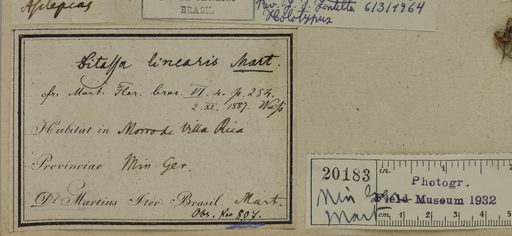 Asclepias
BRASIL
Rev. J. F. Fontella 6/3/1964
Holotypus
Ditassa linearis Mart.
cfr. Mart. Flor. bras. VI. 4. p. 254.
2. XI. 1887.
Habitat in Morro de Villa Rica
Provinciae Min. Ger.
Dr Martius Iter Brasil. Mart.
Obs. 807.
20183
in.
Photogr.
Field Museum 1932
Min
Mart
cm. 1 2 3 4 5